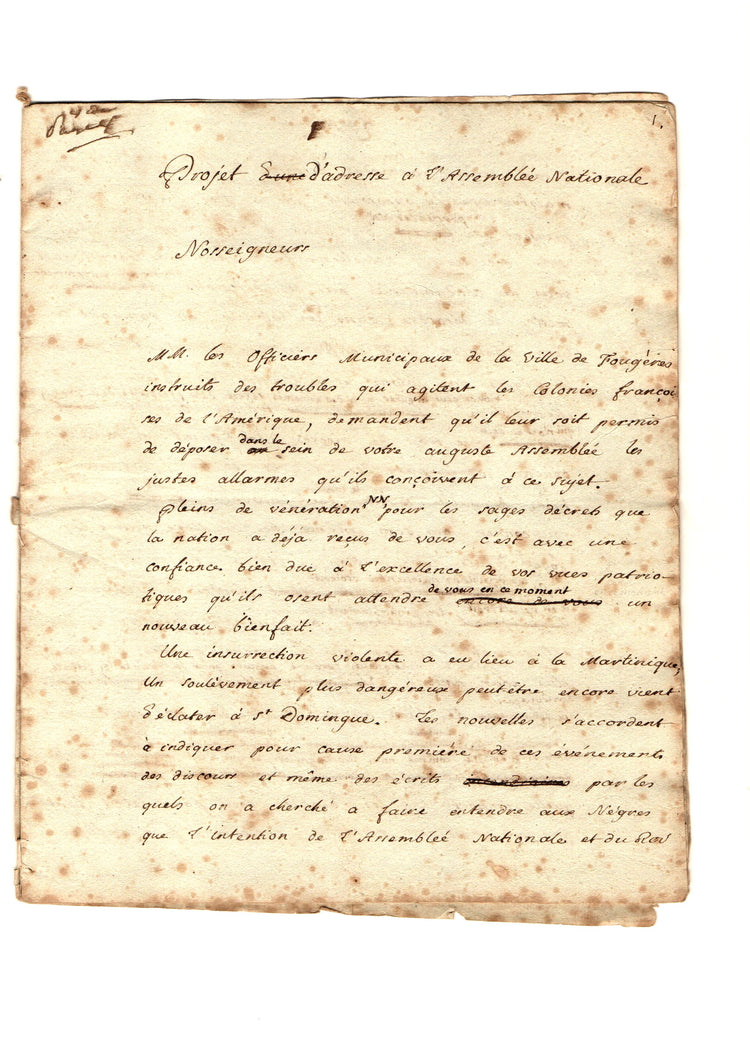 1.
Projet d'une d'adresse à l'Assemblée Nationale
Nosseigneurs
MM. les Officiers Municipaux de la Ville de Fougères
instruits des troubles qui agitent les Colonies françoi
ses de l'Amérique, demandent qu'il leur soit permis
de déposer dans le sein de votre auguste Assemblée les
justes allarmes qu'ils conçoivent à ce sujet.
Pleins de vénération NN pour les sages décrets que
la nation a déja reçus de vous, c'est avec une
confiance bien due à l'excellence de vos vues patrio-
tiques qu'ils osent attendre de vous en ce moment encore de vous un
nouveau bienfait.
Une insurrection violente a eu lieu à la Martinique,
Un soulèvement plus dangéreux peutêtre encore vient
d'éclater à St Domingue. Les nouvelles s'accordent
à indiquer pour cause première de ces événements
des discours et même des écrits incendiaires par les
quels on a cherché a faire entendre aux Négres
que l'intention de l'Assemblée Nationale et du Roi